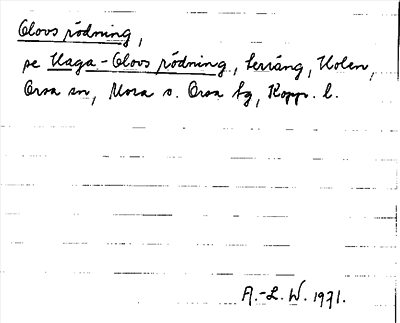 Olovs rödning,
se Haga-Olovs rödning, terräng, Holen,
Orsa sn, Mora o. Orsa tg, Kopp. l.
A.-L.W. 1971.